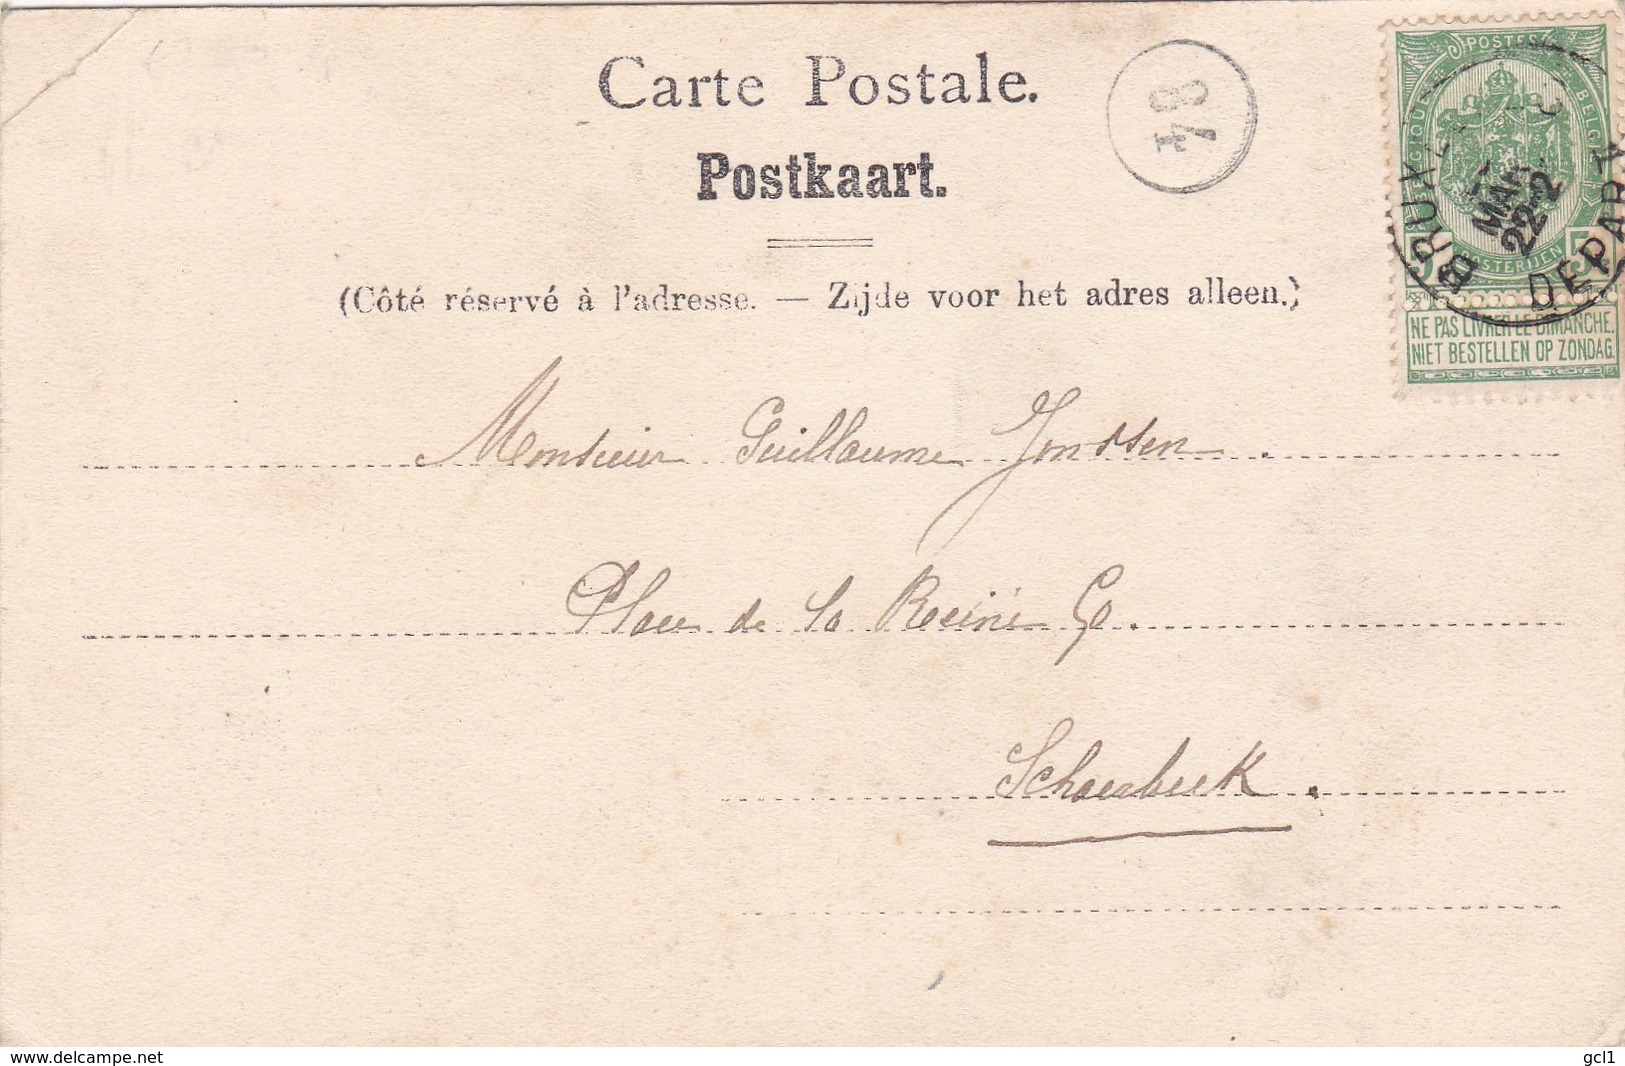 Carte Postale.
Postkaart.
(Côté réservé à l'adresse. — Zijde voor het adres alleen.)
48
POSTES
BELGIQUE
BELGIE
POSTERIJEN
5 5
NE PAS LIVRER LE DIMANCHE.
NIET BESTELLEN OP ZONDAG.
DEPART
MAR
22-2
Monsieur Guillaume Jonssen
Place de la Reine 90.
Schaerbeek.
www.delcampe.net
gcl1